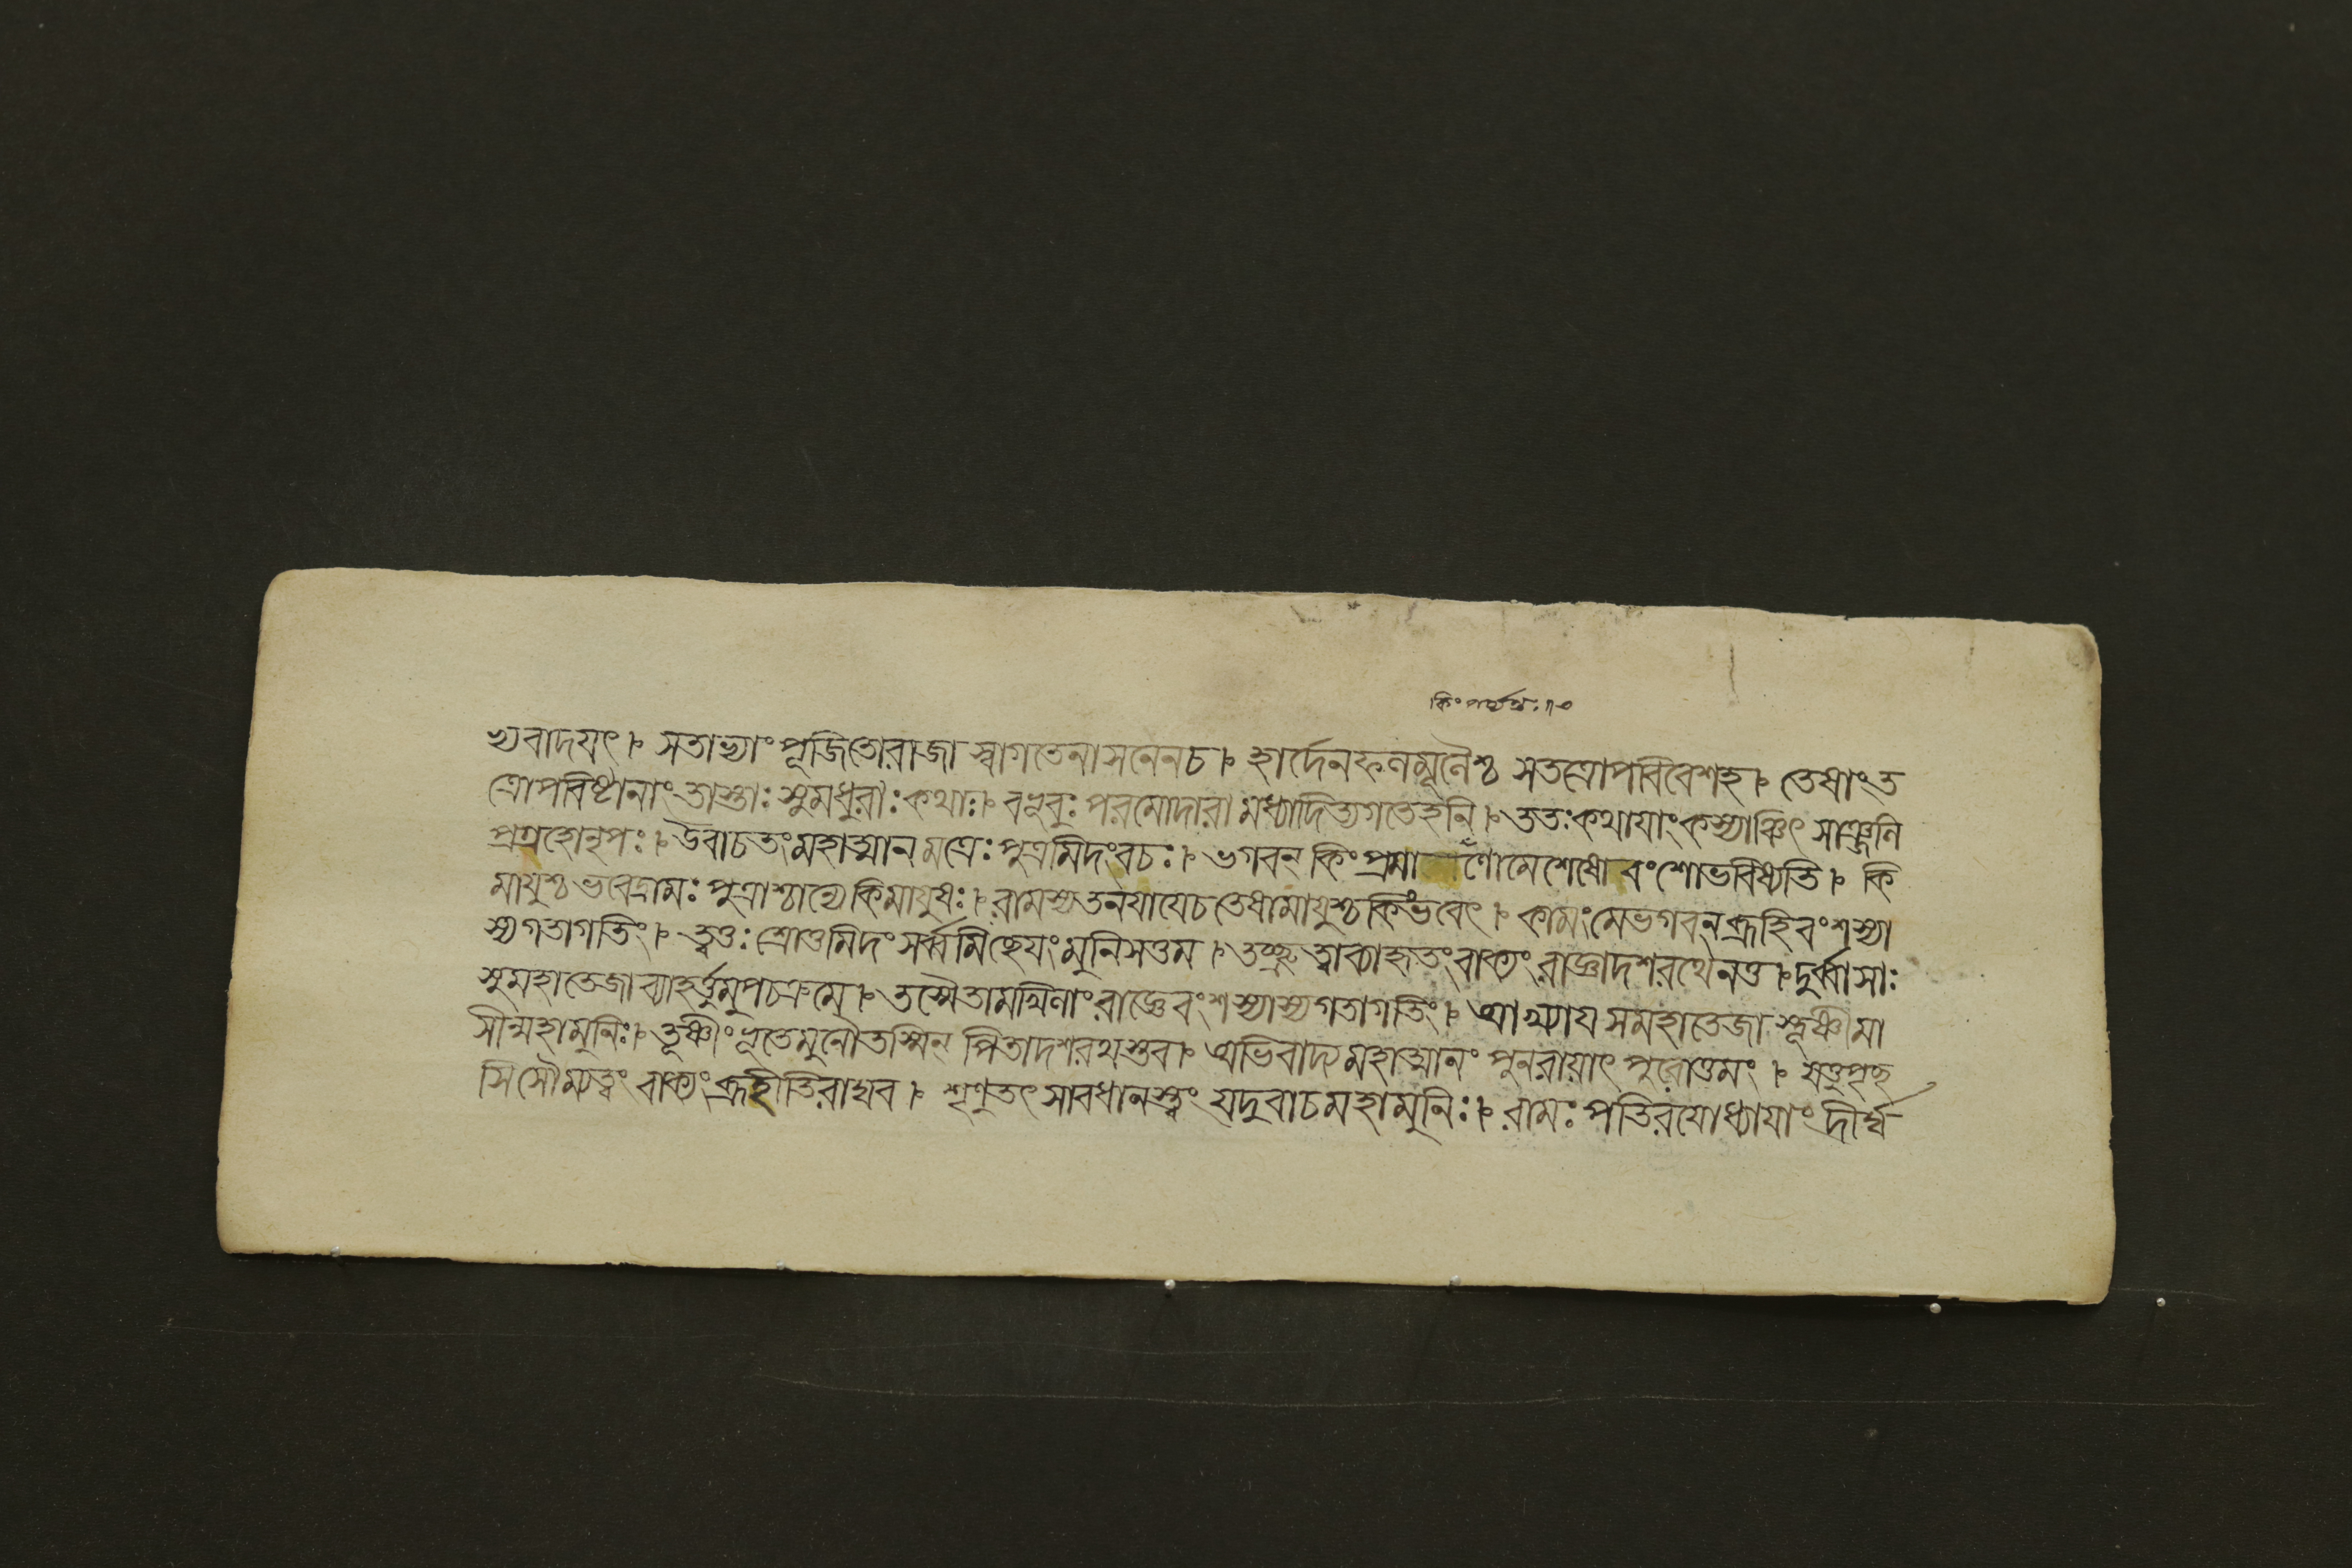 ভ্যবাদয়ৎ। সতাভ্যাং পূজিতোরাজা স্বাগতেনাসনেনচ। হার্দেনফলমূলৈশ্চ সতত্রোপবিবেশহ। তেষাং ত
ত্রোপবিষ্টানাং তাস্তাঃ সুমধুরাঃ কথাঃ। বভূবুঃ পরমোদারা মধ্যাদিত্যগতেহনি। ততঃ কথায়াং কস্যাঞ্চিৎ সাঞ্জলি
প্রগ্রহোনৃপঃ। উবাচতং মহাত্মানমত্রেঃ পুত্রমিদং বচঃ। ভগবন্ কিং প্রমা ণোমেশেষো বংশোভবিষ্যতি। কি
মায়ুশ্চ ভবেদ্রামঃ পুত্রাশ্চান্যে কিমায়ুষঃ। রামস্যতনয়াযেচ তেষামায়ুশ্চ কিংভবেৎ। কামং মেভগবন্ ব্রূহিবংশস্যা
স্যগতাগতিং। ত্বত্তঃ শ্রোতুমিদং সর্ব্বমিচ্ছেয়ং মুনিসত্তম। তচ্ছ্রুত্বাব্যাহৃতং বাক্যং রাজ্ঞাদশরথেনতু। দুর্ব্বাসাঃ
সুমহাতেজা ব্যাহর্ত্তুমুপচক্রমে। তস্মৈতামখিলাং রাজ্ঞেবংশস্যাস্যগতাগতিং। আখ্যায় সমহাতেজা স্তূষ্ণীমা
সীন্মহামুনিঃ। তূষ্ণীংভূতেমুনৌতস্মিন্ পিতাদশরথস্তব। অভিবাদ্য মহাত্মানং পুনরায়াৎ পুরোত্তমং। যত্তুপৃচ্ছ
সিসৌম্যত্বং বাক্যং ব্রূহীতিরাঘব। শৃণুতৎ সাবধানস্ত্বং যদুবাচমহামুনিঃ। রামঃ পতিরযোধ্যায়াং দীর্ঘ